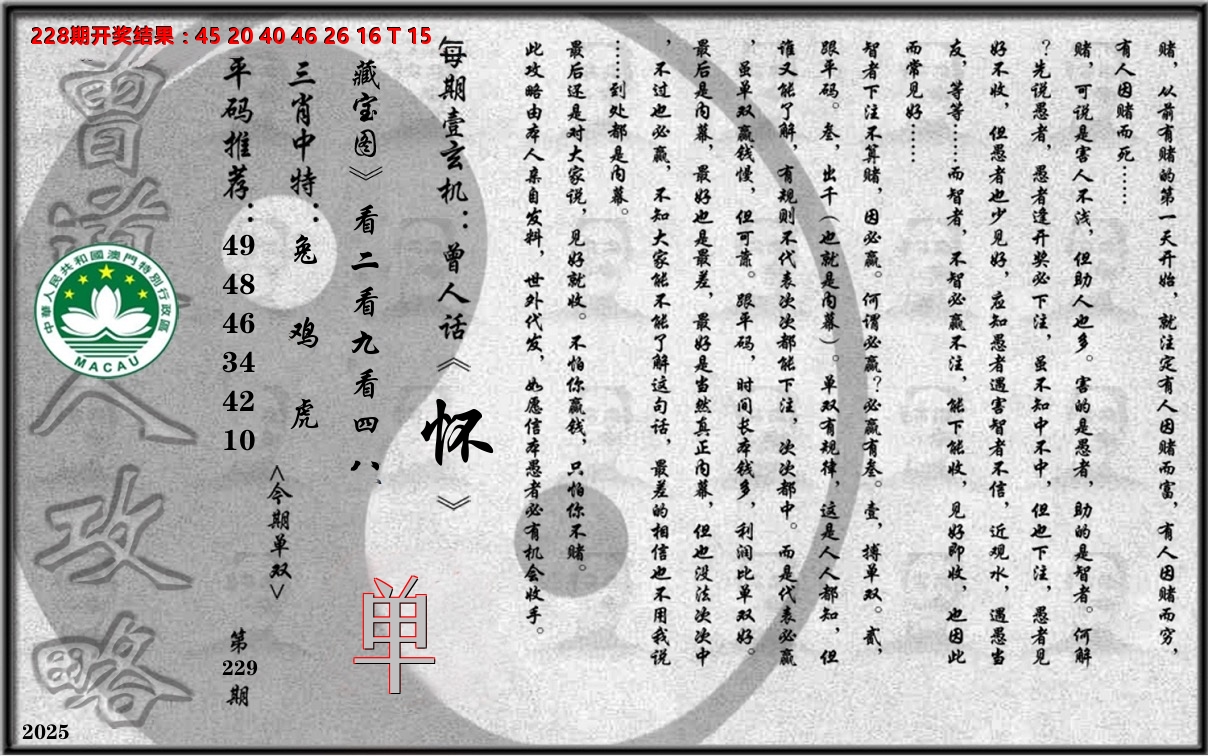 228期开奖结果：45 20 40 46 26 16 T 15
赌，从前有赌的第一天开始，就注定有人因赌而富，有人因赌而穷，
有人因赌而死……
赌，可说是害人不浅，但助人也多。害的是愚者，助的是智者。何解
？先说愚者，愚者逢开奖必下注，虽不知中不中，但也下注，愚者见
好不收，但愚者也少见好，应知愚者遇害智者不信，近观水，遇愚当
友，等等……而智者，不智必赢不注，能下能收，见好即收，也因此
而常见好……
智者下注不算赌，因必赢。何谓必赢？必赢有叁。壹，搏单双。贰，
跟平码。叁，出千（也就是内幕）。单双有规律，这是人人都知，但
谁又能了解，有规则不代表次次都能下注，次次都中。而是代表必赢
，虽单双赢钱慢，但可靠。跟平码，时间长本钱多，利润比单双好。
最后是内幕，最好也是最差，最好是当然真正内幕，但也没法次次中
，不过也必赢，不知大家能不能了解这句话，最差的相信也不用我说
……到处都是内幕。
最后还是对大家说，见好就收。不怕你赢钱，只怕你不赌。
此攻略由本人亲自发料，世外代发，如愿信本愚者必有机会收手。
每期壹玄机：曾人话《怀》
藏宝图》看二看九看四八
单
三肖中特：兔 鸡 虎
<今期单双>
平码推荐：49 48 46 34 42 10
第229期
曾道人攻略
中華人民共和國澳門特別行政區
MACAU
2025